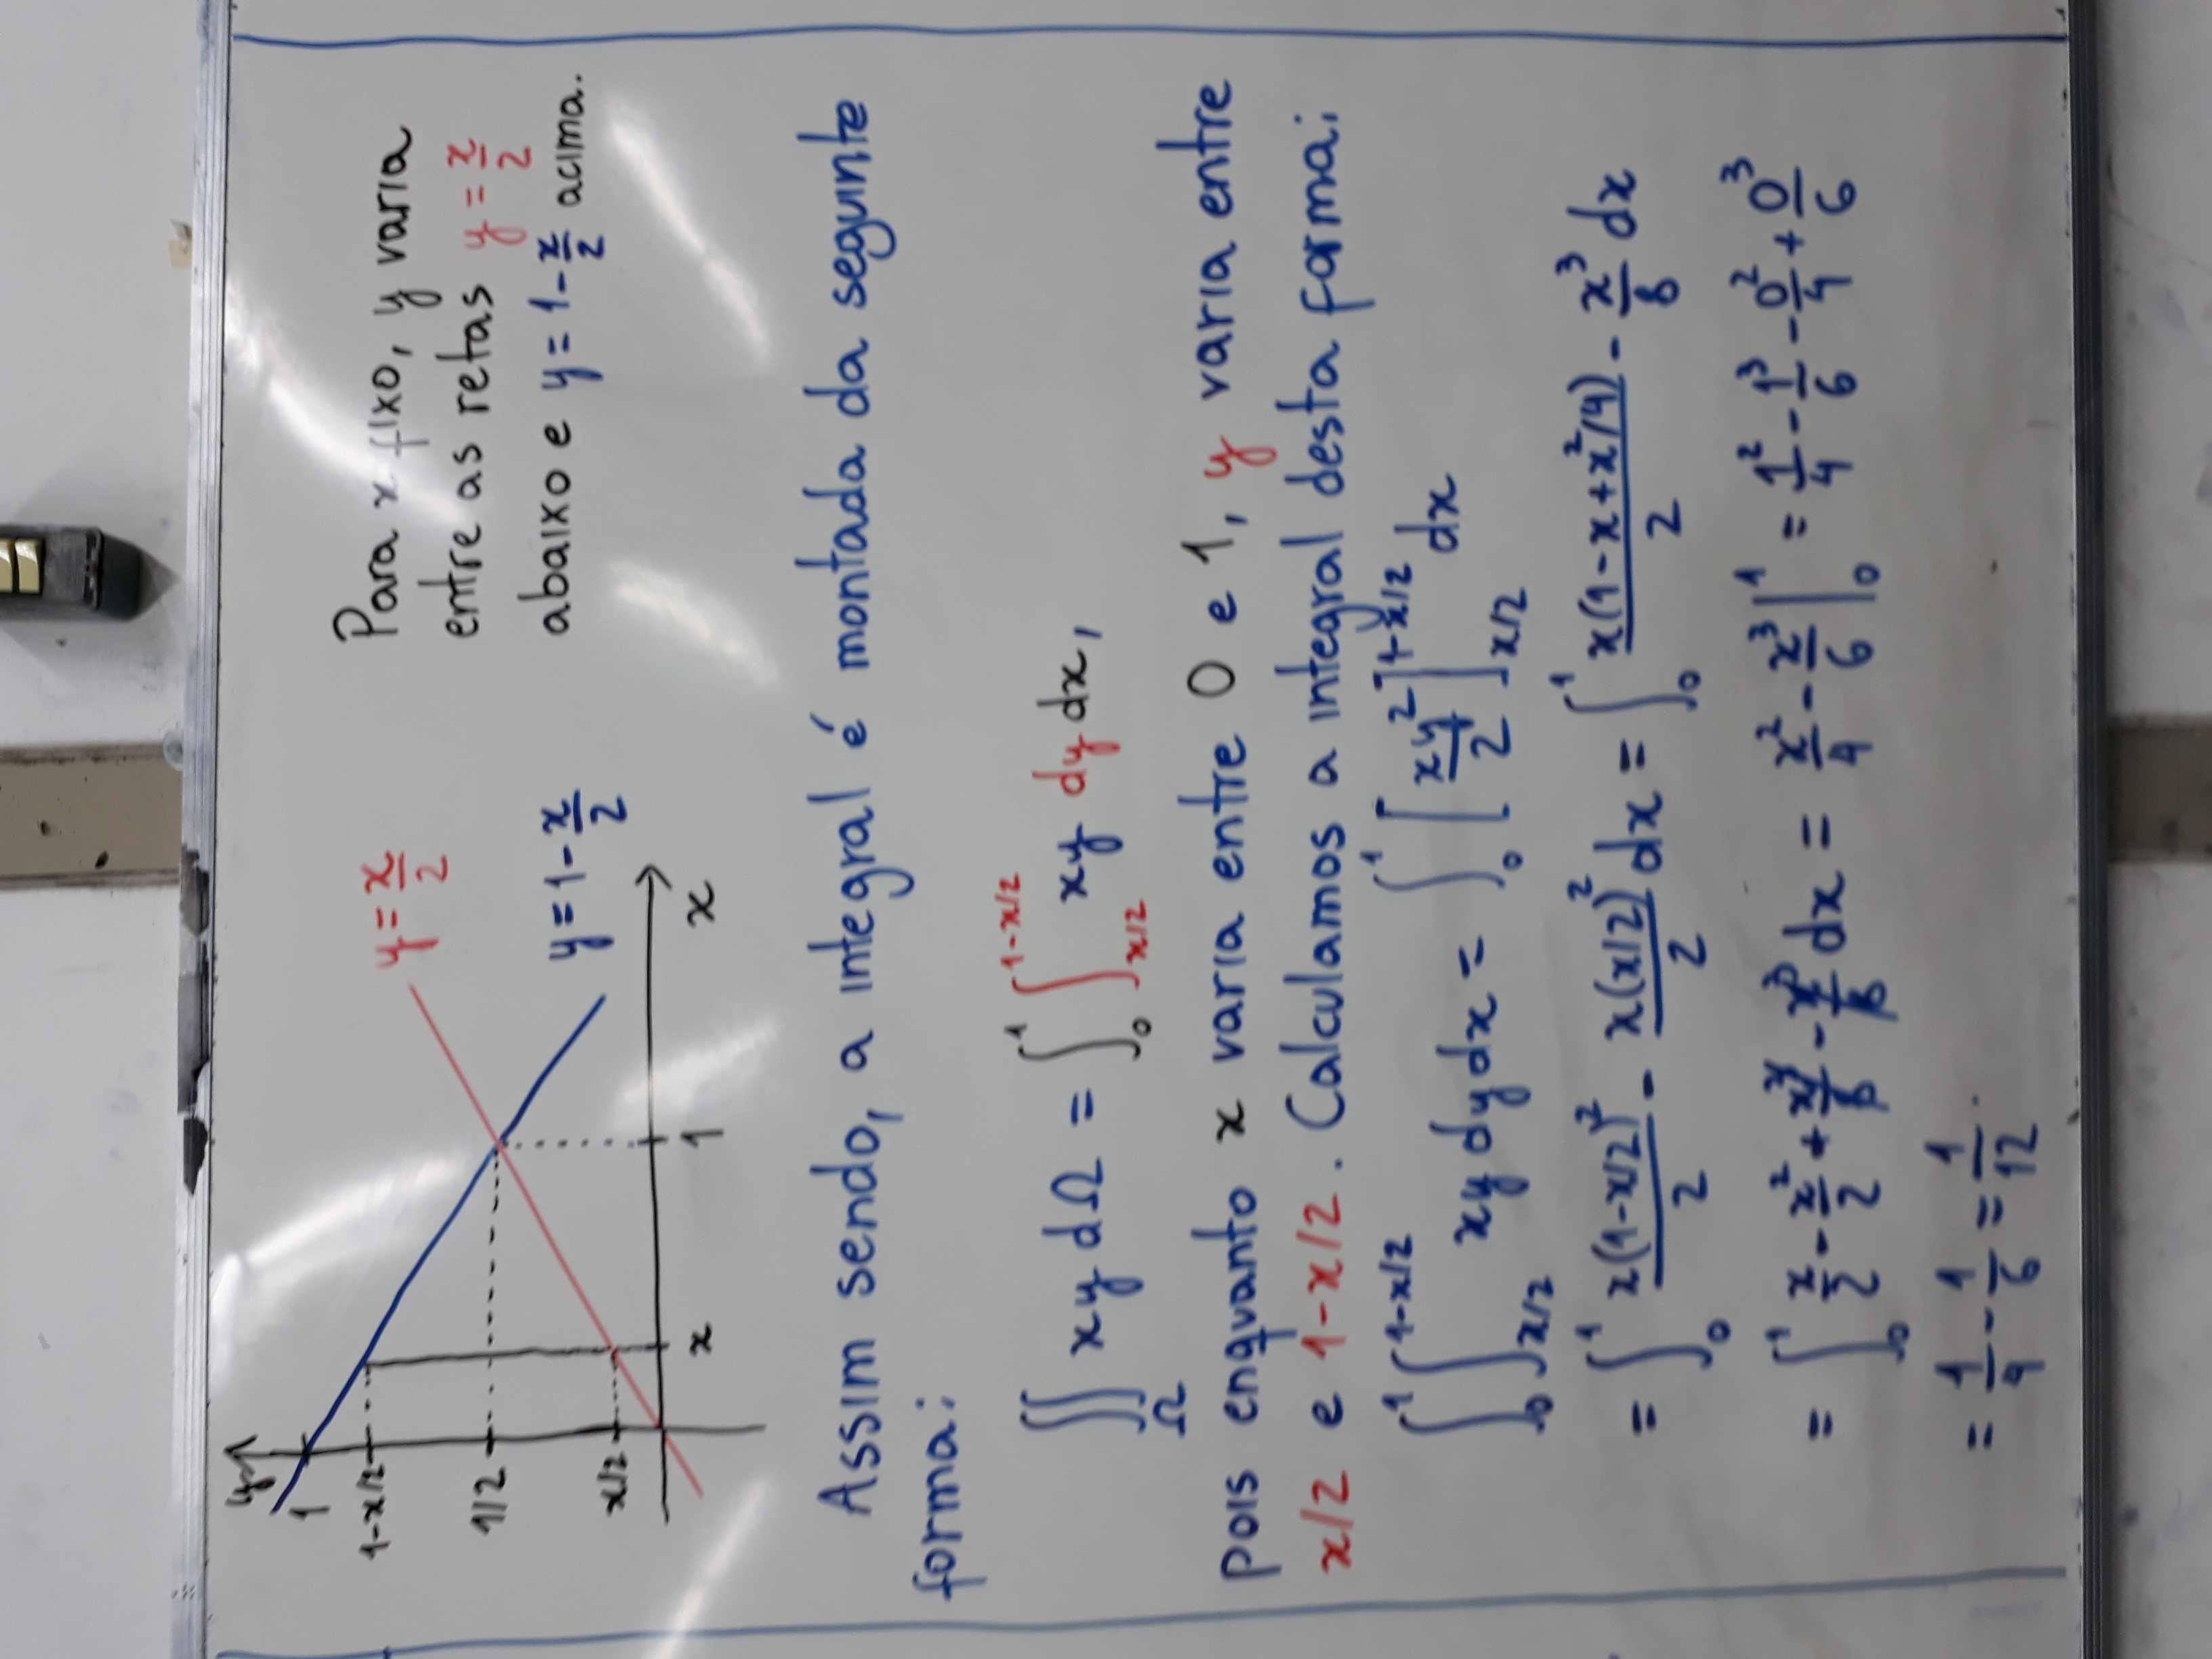 y
1
1-x/2
1/2
x/2
x
1
x
y = x/2
y = 1 - x/2
Para x fixo, y varia
entre as retas y = x/2
abaixo e y = 1 - x/2 acima.
Assim sendo, a integral é montada da seguinte
forma:
∬_Ω xy dΩ = ∫_0^1 ∫_{x/2}^{1-x/2} xy dy dx,
pois enquanto x varia entre 0 e 1, y varia entre
x/2 e 1-x/2. Calculamos a integral desta forma:
∫_0^1 ∫_{x/2}^{1-x/2} xy dy dx = ∫_0^1 [xy²/2]_{x/2}^{1-x/2} dx
= ∫_0^1 x(1-x/2)²/2 - x(x/2)²/2 dx = ∫_0^1 x(1-x+x²/4)/2 - x³/8 dx
= ∫_0^1 x/2 - x²/2 + x³/8 - x³/8 dx = x²/4 - x³/6 |_0^1 = 1²/4 - 1³/6 - 0²/4 + 0³/6
= 1/4 - 1/6 = 1/12.